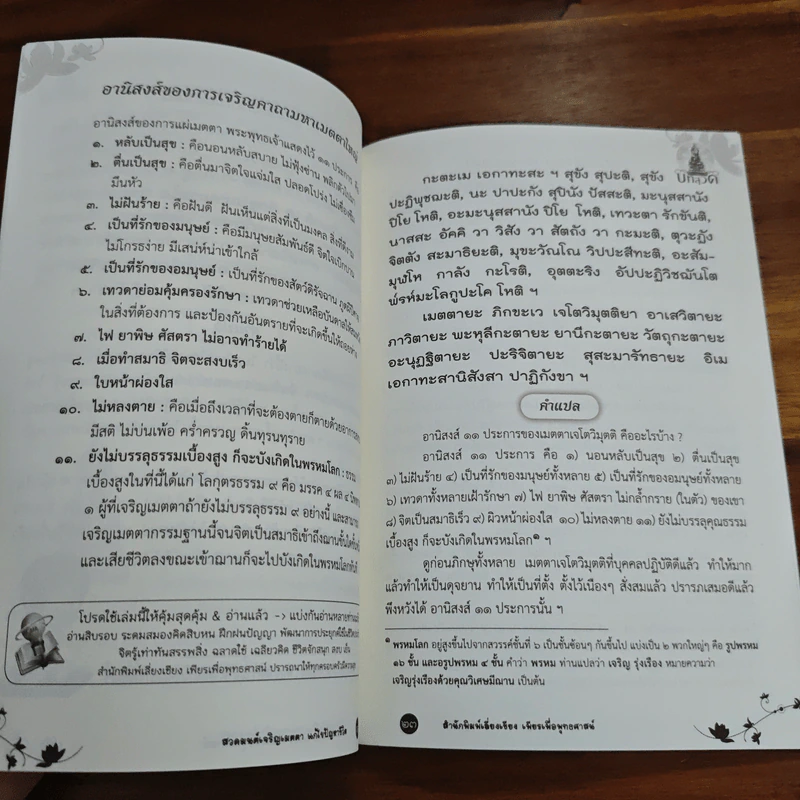 อานิสงส์ของการเจริญคาถามหาเมตตาใหญ่
อานิสงส์ของการแผ่เมตตา พระพุทธเจ้าแสดงไว้ ๑๑ ประการ
๑. หลับเป็นสุข : คือนอนหลับสบาย ไม่ฟุ้งซ่าน พลิกตัวไปมา
๒. ตื่นเป็นสุข : คือตื่นมาจิตใจแจ่มใส ปลอดโปร่ง ไม่
มึนหัว
๓. ไม่ฝันร้าย : คือฝันดี ฝันเห็นแต่สิ่งที่เป็นมงคล สิ่งที่ดีงาม
๔. เป็นที่รักของมนุษย์ : คือมีมนุษยสัมพันธ์ดี จิตใจเบิกบาน
ไม่โกรธง่าย มีเสน่ห์น่าเข้าใกล้
๕. เป็นที่รักของอมนุษย์ : เป็นที่รักของสัตว์ดิรัจฉาน
๖. เทวดาย่อมคุ้มครองรักษา : เทวดาช่วยเหลือบันดาลให้
ในสิ่งที่ต้องการ และป้องกันอันตรายที่จะเกิดขึ้นให้
๗. ไฟ ยาพิษ ศัสตรา ไม่อาจทำร้ายได้
๘. เมื่อทำสมาธิ จิตจะสงบเร็ว
๙. ใบหน้าผ่องใส
๑๐. ไม่หลงตาย : คือเมื่อถึงเวลาที่จะต้องตายก็ตายด้วยอาการ
มีสติ ไม่บ่นเพ้อ คร่ำครวญ ดิ้นทุรนทุราย
๑๑. ยังไม่บรรลุธรรมเบื้องสูง ก็จะบังเกิดในพรหมโลก : ธรรม
เบื้องสูงในที่นี้ได้แก่ โลกุตรธรรม ๙ คือ มรรค ๔ ผล ๔ นิพพาน
๑ ผู้ที่เจริญเมตตาถ้ายังไม่บรรลุธรรม ๙ อย่างนี้ และสามารถ
เจริญเมตตากรรมฐานนี้จนจิตเป็นสมาธิเข้าถึงฌานขั้นใดขั้นหนึ่ง
และเสียชีวิตลงขณะเข้าฌานก็จะไปบังเกิดในพรหมโลก
โปรดใช้เล่มนี้ให้คุ้มสุดคุ้ม & อ่านแล้ว -> แบ่งกันอ่านหลายท่าน
อ่านสิบรอบ ระดมสมองคิดสิบหน ฝึกฝนปัญญา พัฒนาการประยุกต์ใช้ในชีวิต
จิตรู้เท่าทันสรรพสิ่ง ฉลาดใช้ เฉลียวคิด ชีวิตจักสนุก สงบ เย็น
สำนักพิมพ์เลี่ยงเชียง เพียรเพื่อพุทธศาสน์ ปรารถนาให้ทุกครอบครัวมีความสุข
สวดมนต์เจริญเมตตา แก้ไขปัญหาชีวิต
กะตะเม เอกาทะสะ ฯ สุขัง สุปะติ, สุขัง
ปะฏิพุชฌะติ, นะ ปาปะกัง สุปินัง ปัสสะติ, มะนุสสานัง
ปิโย โหติ, อะมะนุสสานัง ปิโย โหติ, เทวะตา รักขันติ,
นาสสะ อัคคิ วา วิสัง วา สัตถัง วา กะมะติ, ตุวะฏัง
จิตตัง สะมาธิยะติ, มุขะวัณโณ วิปปะสีทะติ, อะสัม-
มุฬโห กาลัง กะโรติ, อุตตะริง อัปปะฏิวิชฌันโต
พ๎รหมะโลกูปะโค โหติ ฯ
เมตตายะ ภิกขะเว เจโตวิมุตติยา อาเสวิตายะ
ภาวิตายะ พะหุลีกะตายะ ยานีกะตายะ วัตถุกะตายะ
อะนุฏฐิตายะ ปะริจิตายะ สุสะมารัทธายะ อิเม
เอกาทะสานิสังสา ปาฏิกังขา ฯ
คำแปล
อานิสงส์ ๑๑ ประการของเมตตาเจโตวิมุตติ คืออะไรบ้าง ?
อานิสงส์ ๑๑ ประการ คือ ๑) นอนหลับเป็นสุข ๒) ตื่นเป็นสุข
๓) ไม่ฝันร้าย ๔) เป็นที่รักของมนุษย์ทั้งหลาย ๕) เป็นที่รักของอมนุษย์ทั้งหลาย
๖) เทวดาทั้งหลายเฝ้ารักษา ๗) ไฟ ยาพิษ ศัสตรา ไม่กล้ำกราย (ในตัว) ของเขา
๘) จิตเป็นสมาธิเร็ว ๙) ผิวหน้าผ่องใส ๑๐) ไม่หลงตาย ๑๑) ยังไม่บรรลุคุณธรรม
เบื้องสูง ก็จะบังเกิดในพรหมโลก๑ ฯ
ดูก่อนภิกษุทั้งหลาย เมตตาเจโตวิมุตติที่บุคคลปฏิบัติดีแล้ว ทำให้มาก
แล้วทำให้เป็นดุจยาน ทำให้เป็นที่ตั้ง ตั้งไว้เนืองๆ สั่งสมแล้ว ปรารภเสมอดีแล้ว
พึงหวังได้ อานิสงส์ ๑๑ ประการนั้น ฯ
๑ พรหมโลก อยู่สูงขึ้นไปจากสวรรค์ชั้นที่ ๖ เป็นชั้นซ้อนๆ กันขึ้นไป แบ่งเป็น ๒ พวกใหญ่ๆ คือ รูปพรหม
๑๖ ชั้น และอรูปพรหม ๔ ชั้น คำว่า พรหม ท่านแปลว่า เจริญ รุ่งเรือง หมายความว่า
เจริญรุ่งเรืองด้วยคุณวิเศษมีฌาน เป็นต้น
๒๓ สำนักพิมพ์เลี่ยงเชียง เพียรเพื่อพุทธศาสน์